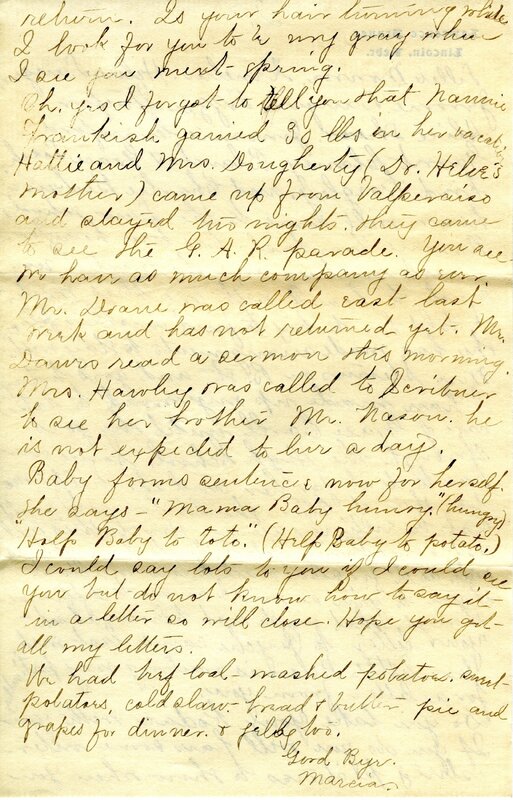 return. Is your hair turning white
I look for you to be very gray when
I see you next spring.
Oh, yes I forgot to tell you that Nannie
Frankish gained 30 lbs in her vacati
Hattie and Mrs. Dougherty (Dr. Helse's
mother) came up from Valperaiso
and stayed two nights. they came
to see the G. A. R. parade. You see
we have as much company as ever.
Mr. Doane was called east last
week and has not returned yet. Mr.
Dawes read a sermon this morning.
Mrs. Hawley was called to Scribner
to see her brother Mr. Nason. he
is not expected to live a day.
Baby forms sentences now for herself.
She says - "Mama Baby hunry." (hungry)
"Help Baby to toto." (Help Baby to potato.)
I could say lots to you if I could see
you but do not know how to say it
in a letter so will close. Hope you get
all my letters.
We had beef loaf - mashed potatoes. sweet
potatoes, cold slaw - bread & butter. pie and
grapes for dinner. & jelly too.
Good Bye.
Marcia.
Lincoln, Nebr.